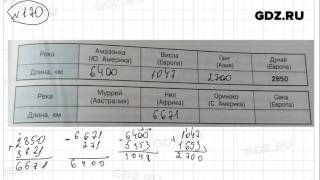 №170
GDZ.RU
Река Амазонка (Ю. Америка) Висла (Европа) Ганг (Азия) Дунай (Европа)
Длина, км 6400 1047 2700 2850
Река Муррей (Австралия) Нил (Африка) Ориноко (С. Америка) Сена (Европа)
Длина, км 6671
+2850 -6671 -6400 +1047
3821 271 5353 1653
6671 6400 1047 2700
GDZ.RU